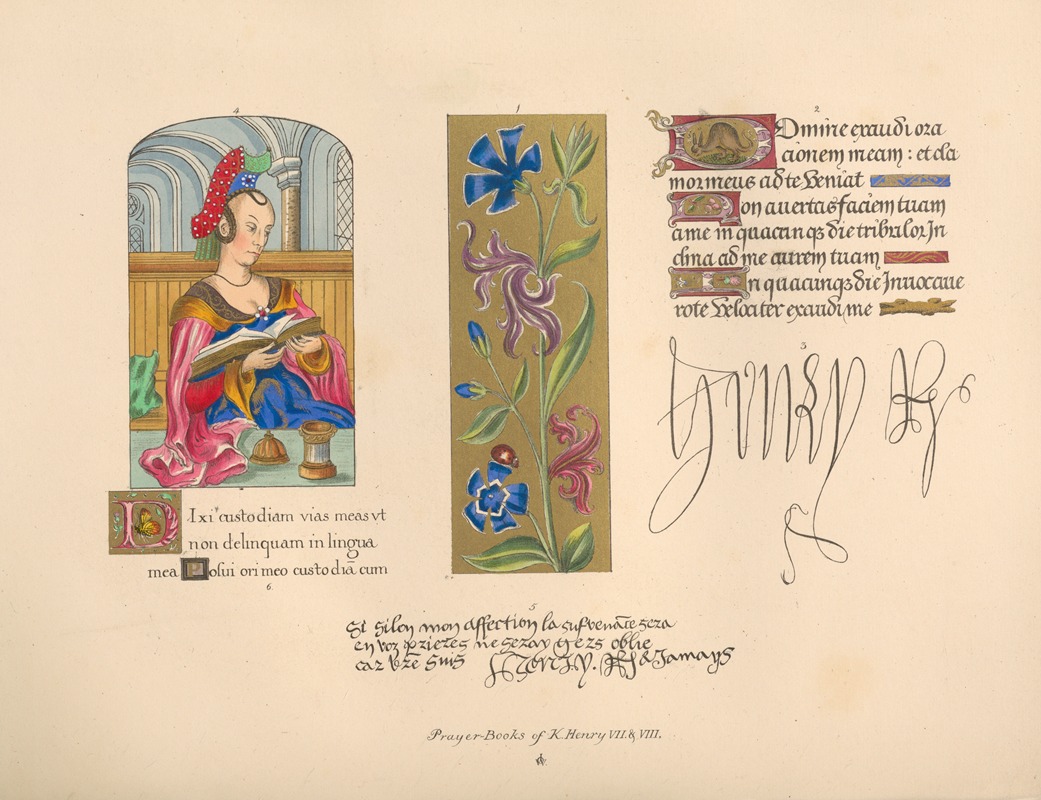 4
1
2
Domine exaudi ora
cionem meam : et cla
mor meus ad te veniat
Non auertas faciem tuam
a me in quacunqz die tribulor In
clina ad me aurem tuam
In quacunqz die Inuocaue
rote velociter exaudi me
3
DIxi custodiam vias meas vt
non delinquam in lingua
mea Posui ori meo custodiā cum
6
5
si silon mon affection la sufvenāce sera
en voz prieres ne seray gers oblie
car vrē suis Henry. R & Jamays
Henry R
Prayer-Books of K. Henry VII. & VIII.